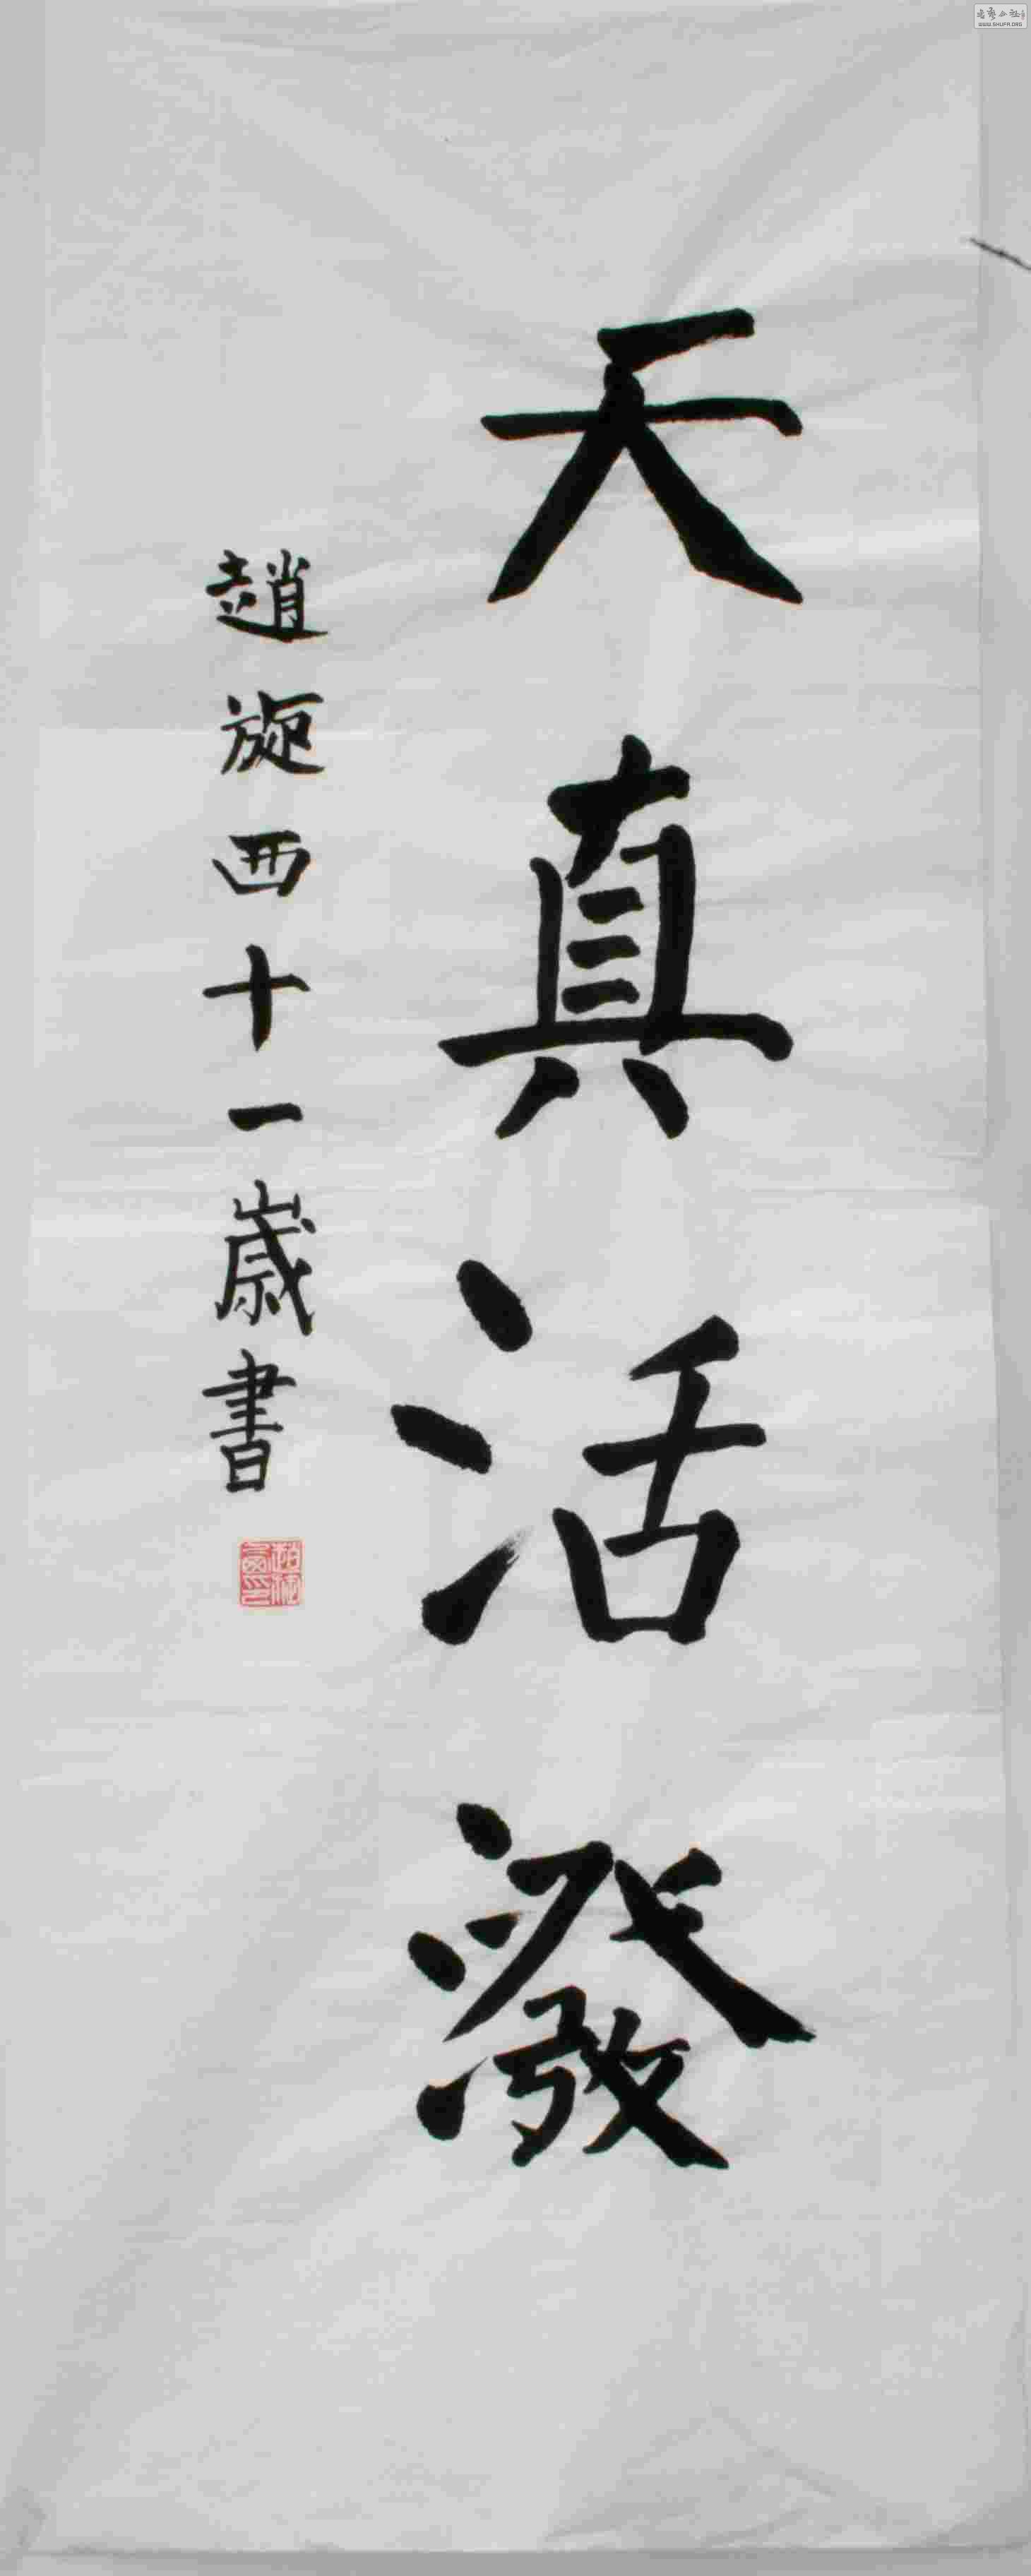 天真活潑
趙旋西十一歲書
WWW.SHUFA.ORG